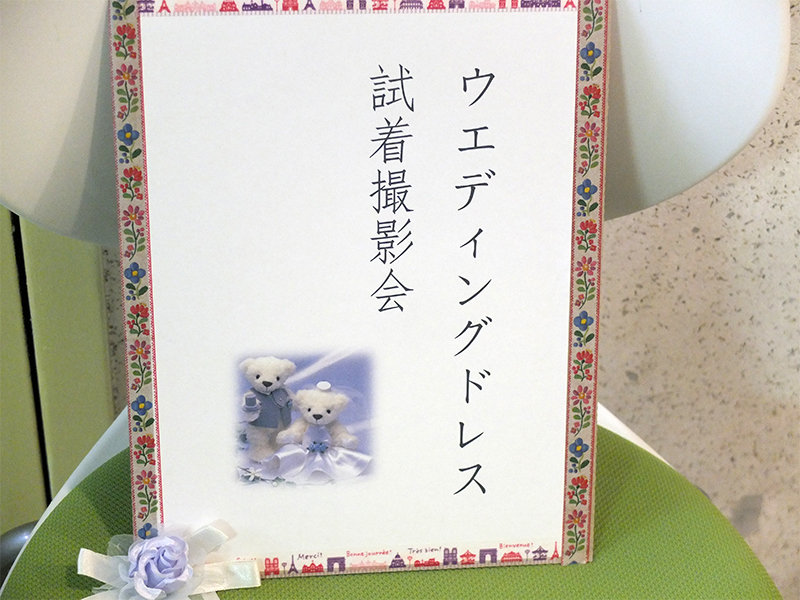 ウエディングドレス
試着撮影会
Merci!
Bonne journée!
Très bien!
Bienvenue!